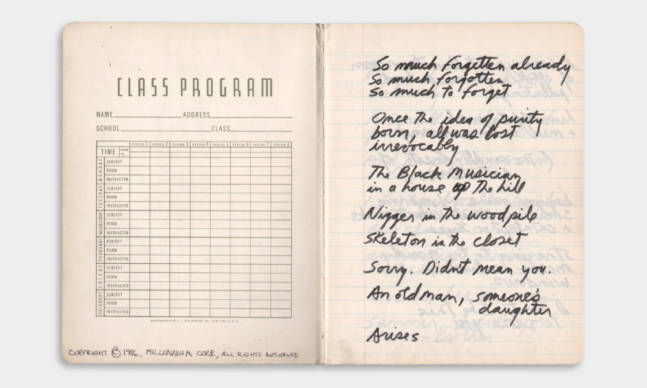 CLASS PROGRAM
NAME ADDRESS
SCHOOL CLASS
TIME
SUBJECT
ROOM
INSTRUCTOR
SUBJECT
ROOM
INSTRUCTOR
SUBJECT
ROOM
INSTRUCTOR
SUBJECT
ROOM
INSTRUCTOR
SUBJECT
ROOM
INSTRUCTOR
SUBJECT
ROOM
INSTRUCTOR
COPYRIGHT © 1986, ALL RIGHTS RESERVED
So much forgotten already
So much forgotten
So much to forget
Once the idea of purity
born, all was lost
irrevocably
The Black Musician
in a house up the hill
Nigger in the woodpile
Skeleton in the closet
Sorry. Didnt mean you.
An old man, someone's
daughter
Arises